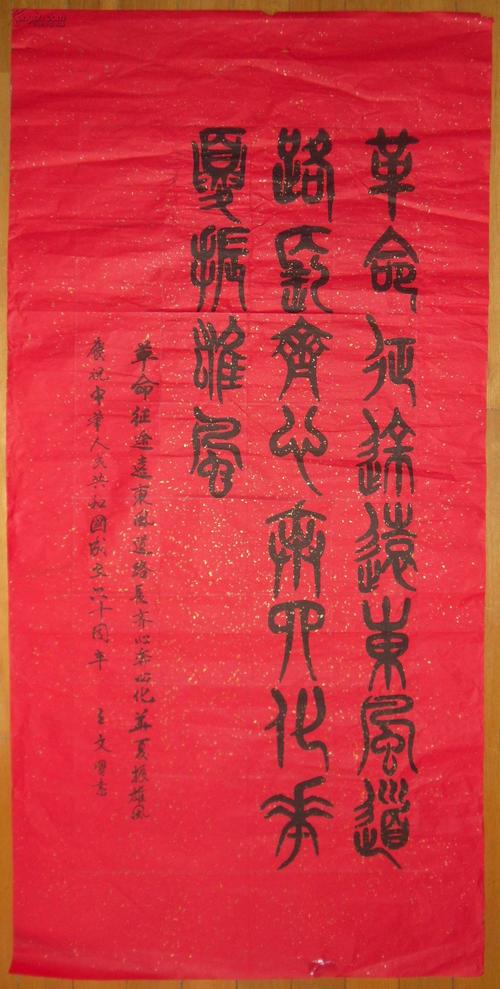 革命征途遠東風道
路長齊心奔四化華
夏振雄風
革命征途遠東風道路長齐心奔四化華夏振雄风
慶祝中華人民共和國成立六十周年 王文書